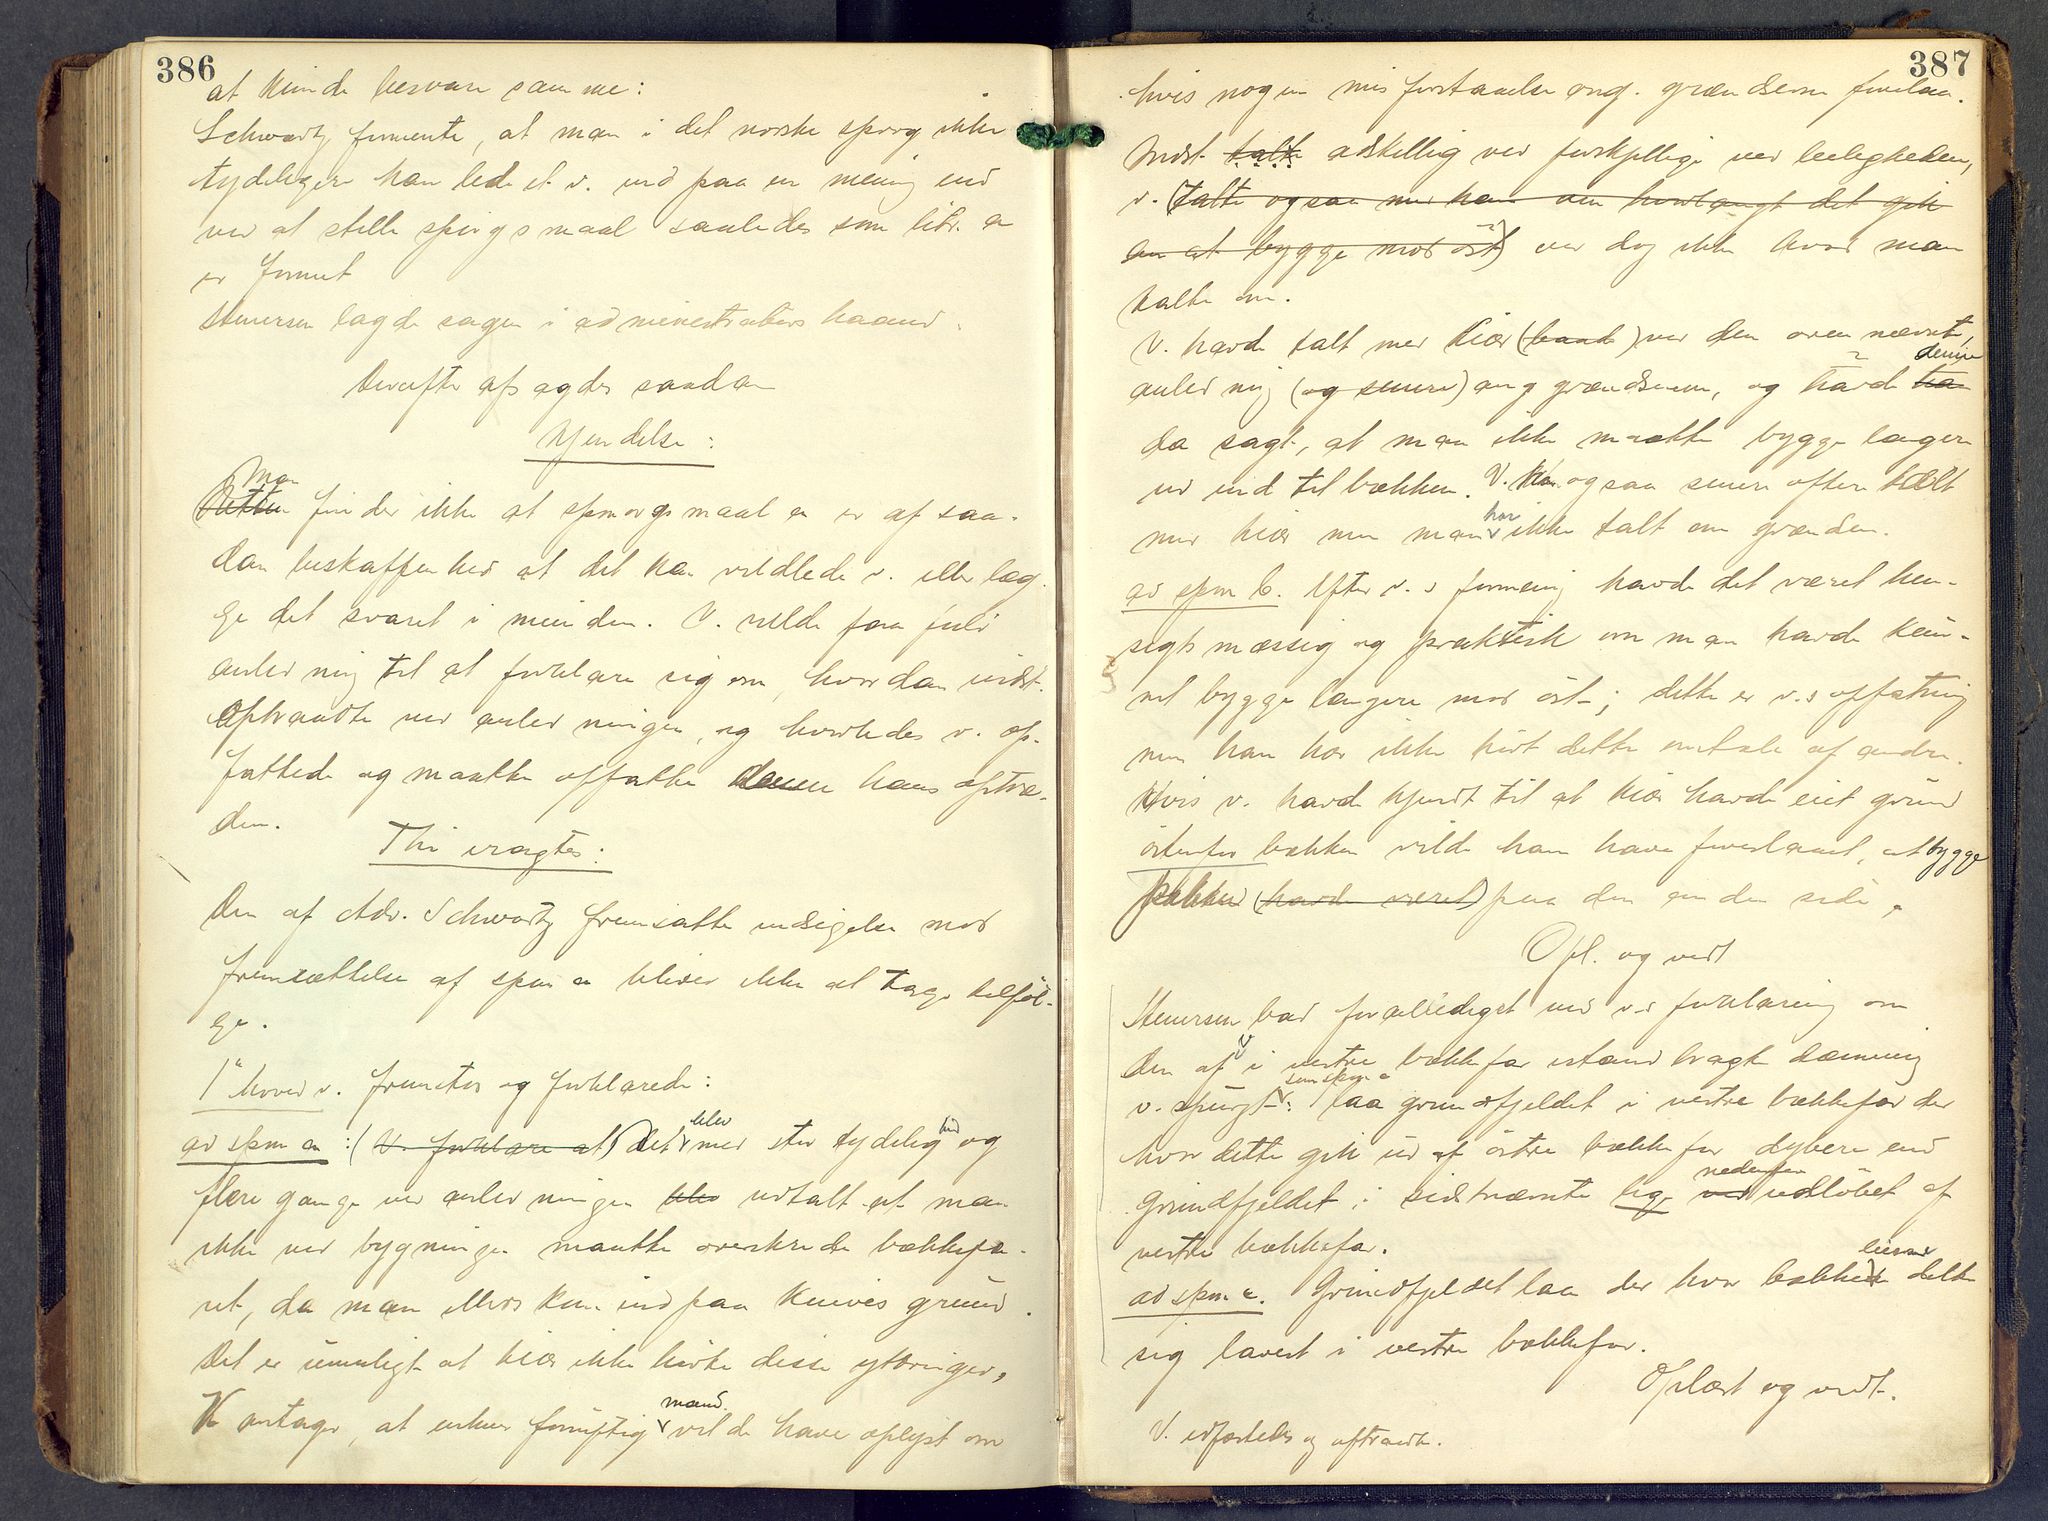 386
at kunde besvare samme:
Schwartz formente, at man i det norske sprog ikke
tydeligere kan lede et v. ind paa en mening end
ved at stille spörgsmaal saaledes som litr. a
er formet
Steuersen lagde sagen i administrators haand.
Derefter afsagdes saadan
Kjendelse:
Retten Man finder ikke at spmorgsmaal a er af saa-
dan beskaffenhed at det kan vildlede v. eller læg-
ge det svaret i munden. V. vilde faa fuld
anledning til at forklare sig om, hvordan indst.
optraadte ved anledningen, og hvorledes v. op-
fattede og maatte opfatte hans optræ-
den.
Thi eragtes:
Den af Adv. Schwartz fremsatte indsigelse mod
fremsættelse af spm a bliver ikke at tage tilföl-
ge.
1ste hoved v. fremstod og forklarede:
ad spm a: (V. forklare at) det blev med stor tydelighed og
flere gange ved anledningen blev udtalt at man
ikke ved bygningen maatte overskride bækkefa-
ret, da man ellers kom ind paa Knives grund.
Det er umuligt at Kiær ikke hörte disse ytringer,
V antager, at enhver fornuftig mand vilde have oplyst om
387
hvis nogen misforstaaelse ang. grændserne forelaa.
Indst. talte adskillig ved forskjellige ved leiligheden,
v. (talte ogsaa med ham om hvorlangt det gik
an at bygge mod öst) ved dog ikke hvad man
talte om.
V. havde talt med Kiær (baade) ved den oven nævnte
anledning (og senere) ang grændserne, og havde denne
da sagt, at man ikke maatte bygge længere
ud end til bækken. V. har ogsaa senere oftere talt
med Kiær men man har ikke talt om grænden.
ad spm b. Efter v.s formening havde det været hen-
sigtsmæssig og praktisk om man havde kun-
net bygge længere mod öst; dette er v.s opfatning
men han har ikke hört dette omtale af andre.
Hvis v. havde kjendt til at Kiær havde eiet grund
östenfor bækken vilde han have foreslaaet, at bygge
(havde været) paa den anden side.
Opl. og vedt
Steuersen bad foranlediget ved v.s forklaring om
den af v i vestre bækkefar istandbragte dæmning
v. spurgt som spm c: laa grundfjeldet i vestre bækkefar der
hvor dette gik ud af östre bækkefar dybere end
grundfjeldet i sidstnævnte lige nedenfor udlöbet af
vestre bækkefar.
ad spm c. Grundfjeldet laa der hvor bækken delte
sig lavest i vestre bækkefar.
Oplæst og vedt.
V. edfæstedes og aftraadte.